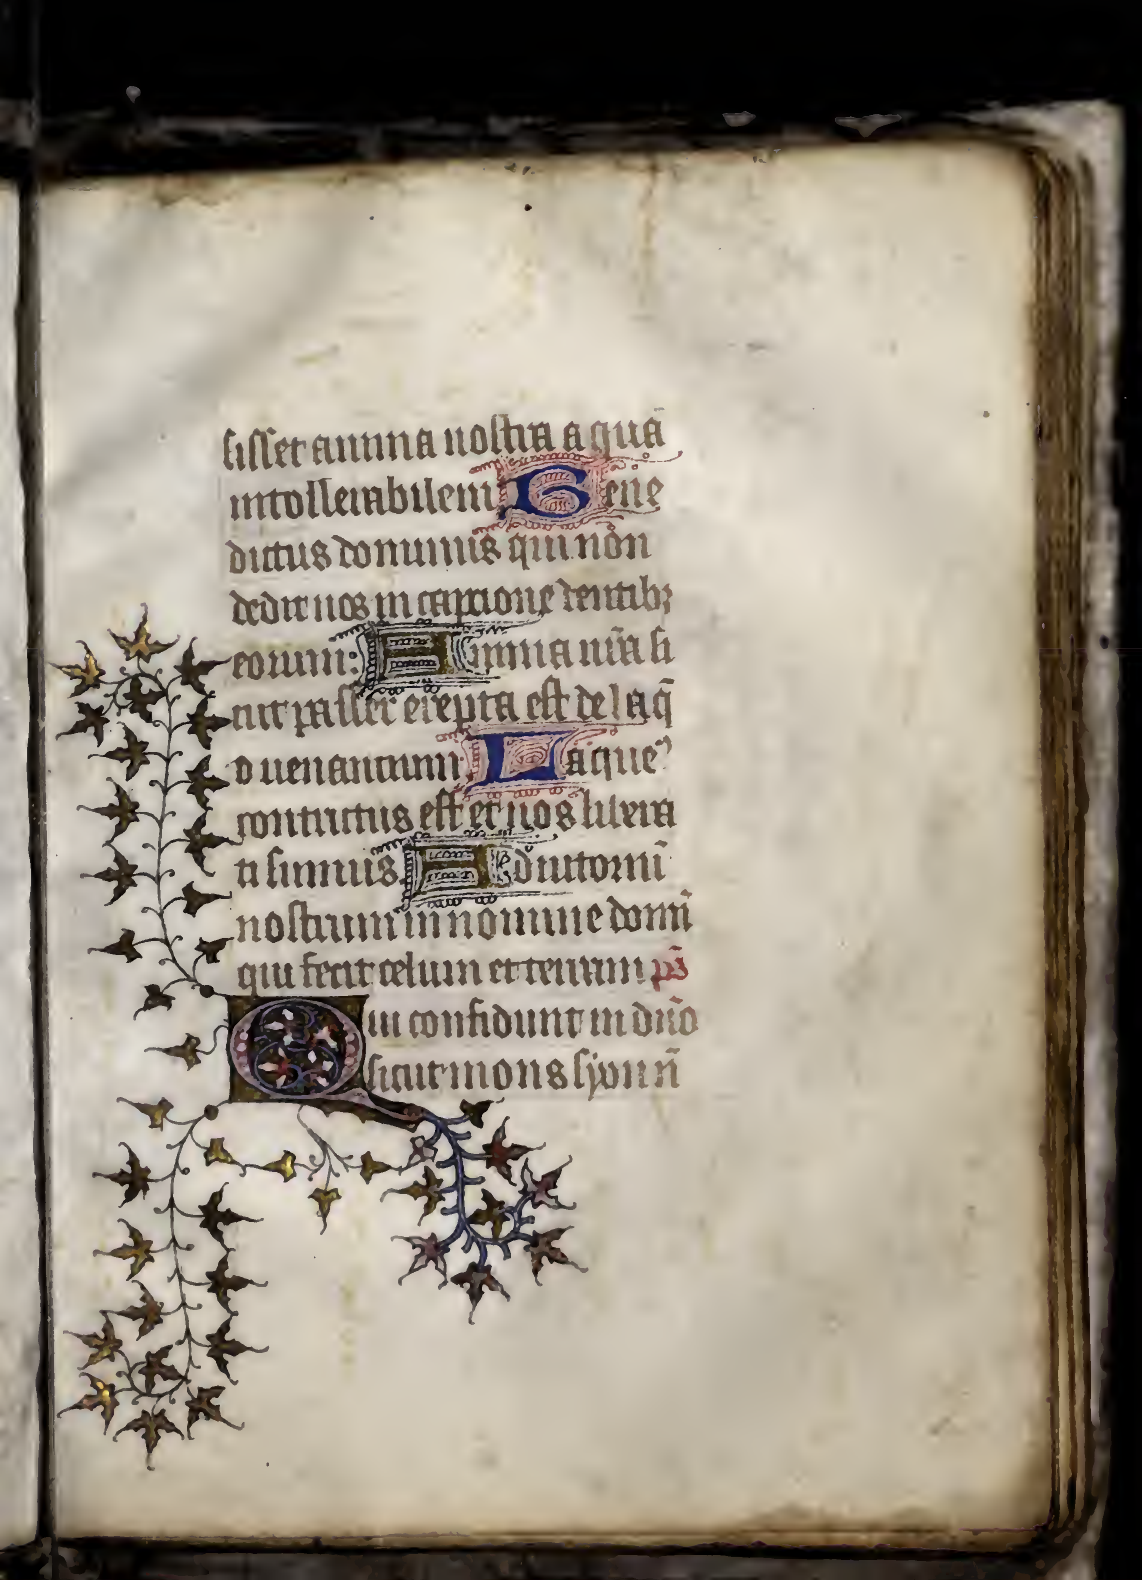 sisset anima nostra aquā
intollerabilem Bene
dictus dominus qui non
dedit nos in captione dentibꝫ
eorum: Anima nr̄a si
cut passer erepta est de laq̄
o uenantium Laqueꝰ
contritus est et nos libera
ti sumus Adiutoriū
nostrum in nomine domī
qui fecit celum et terram pS̄
Qui confidunt in dn̄o
sicut mons syon n̄